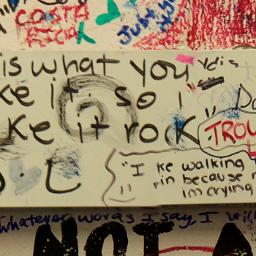 COSTA
RICA
is what you
ke it. so
ke it rock
TROU
"I ke walking
rin because n
im crying
whatever words I say, I will
NOT A